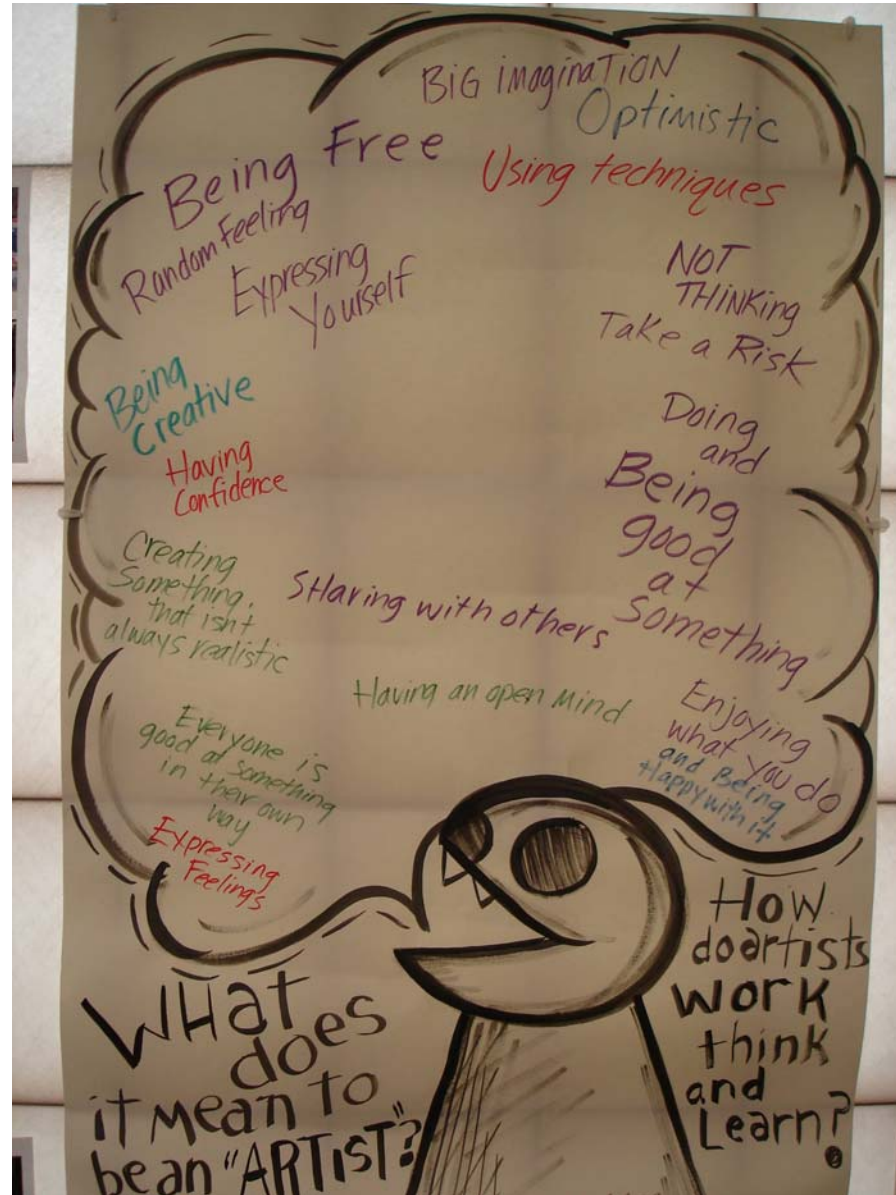 BiG imaginaTiON
Optimistic
Using techniques
Being Free
Random Feeling
Expressing
Yourself
NOT
THiNKing
Take a Risk
Being
Creative
Having
Confidence
Doing
and
Being
good
at
Something
Creating
Something,
that isn't
always realistic
SHaring with others
Having an open Mind
Enjoying
what you do
and Being
Happy with it
Everyone is
good at something
in their own
way
Expressing
Feelings
WHat
does
it mean to
be an "ARTIST"?
How
do artists
WORK
think
and
Learn?